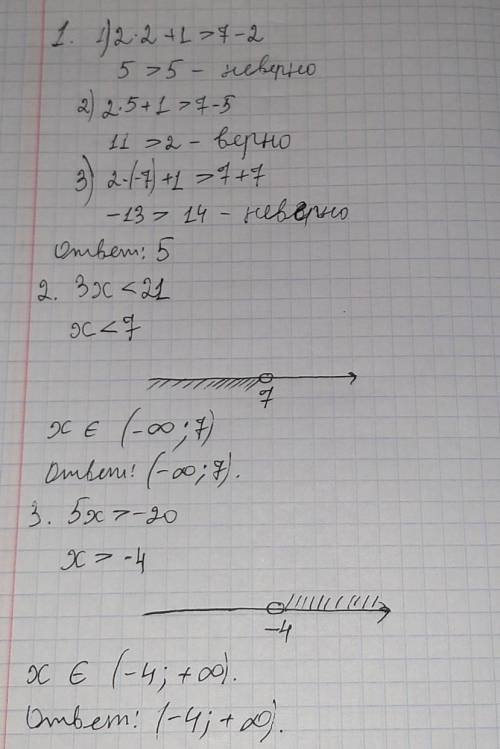 1. 1) 2·2+1>7-2
5>5 - неверно
2) 2·5+1>7-5
11>2 - верно
3) 2·(-7)+1>7+7
-13>14 - неверно
Ответ: 5
2. 3x<21
x<7
7
x ∈ (-∞; 7)
Ответ: (-∞; 7).
3. 5x>-20
x>-4
-4
x ∈ (-4; +∞).
Ответ: (-4; +∞).